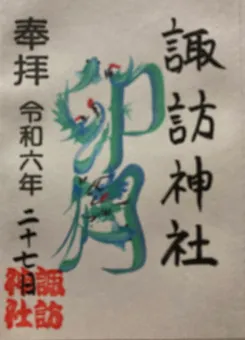 諏訪神社
卯月
奉拝 令和六年 二十七日
諏訪
神社